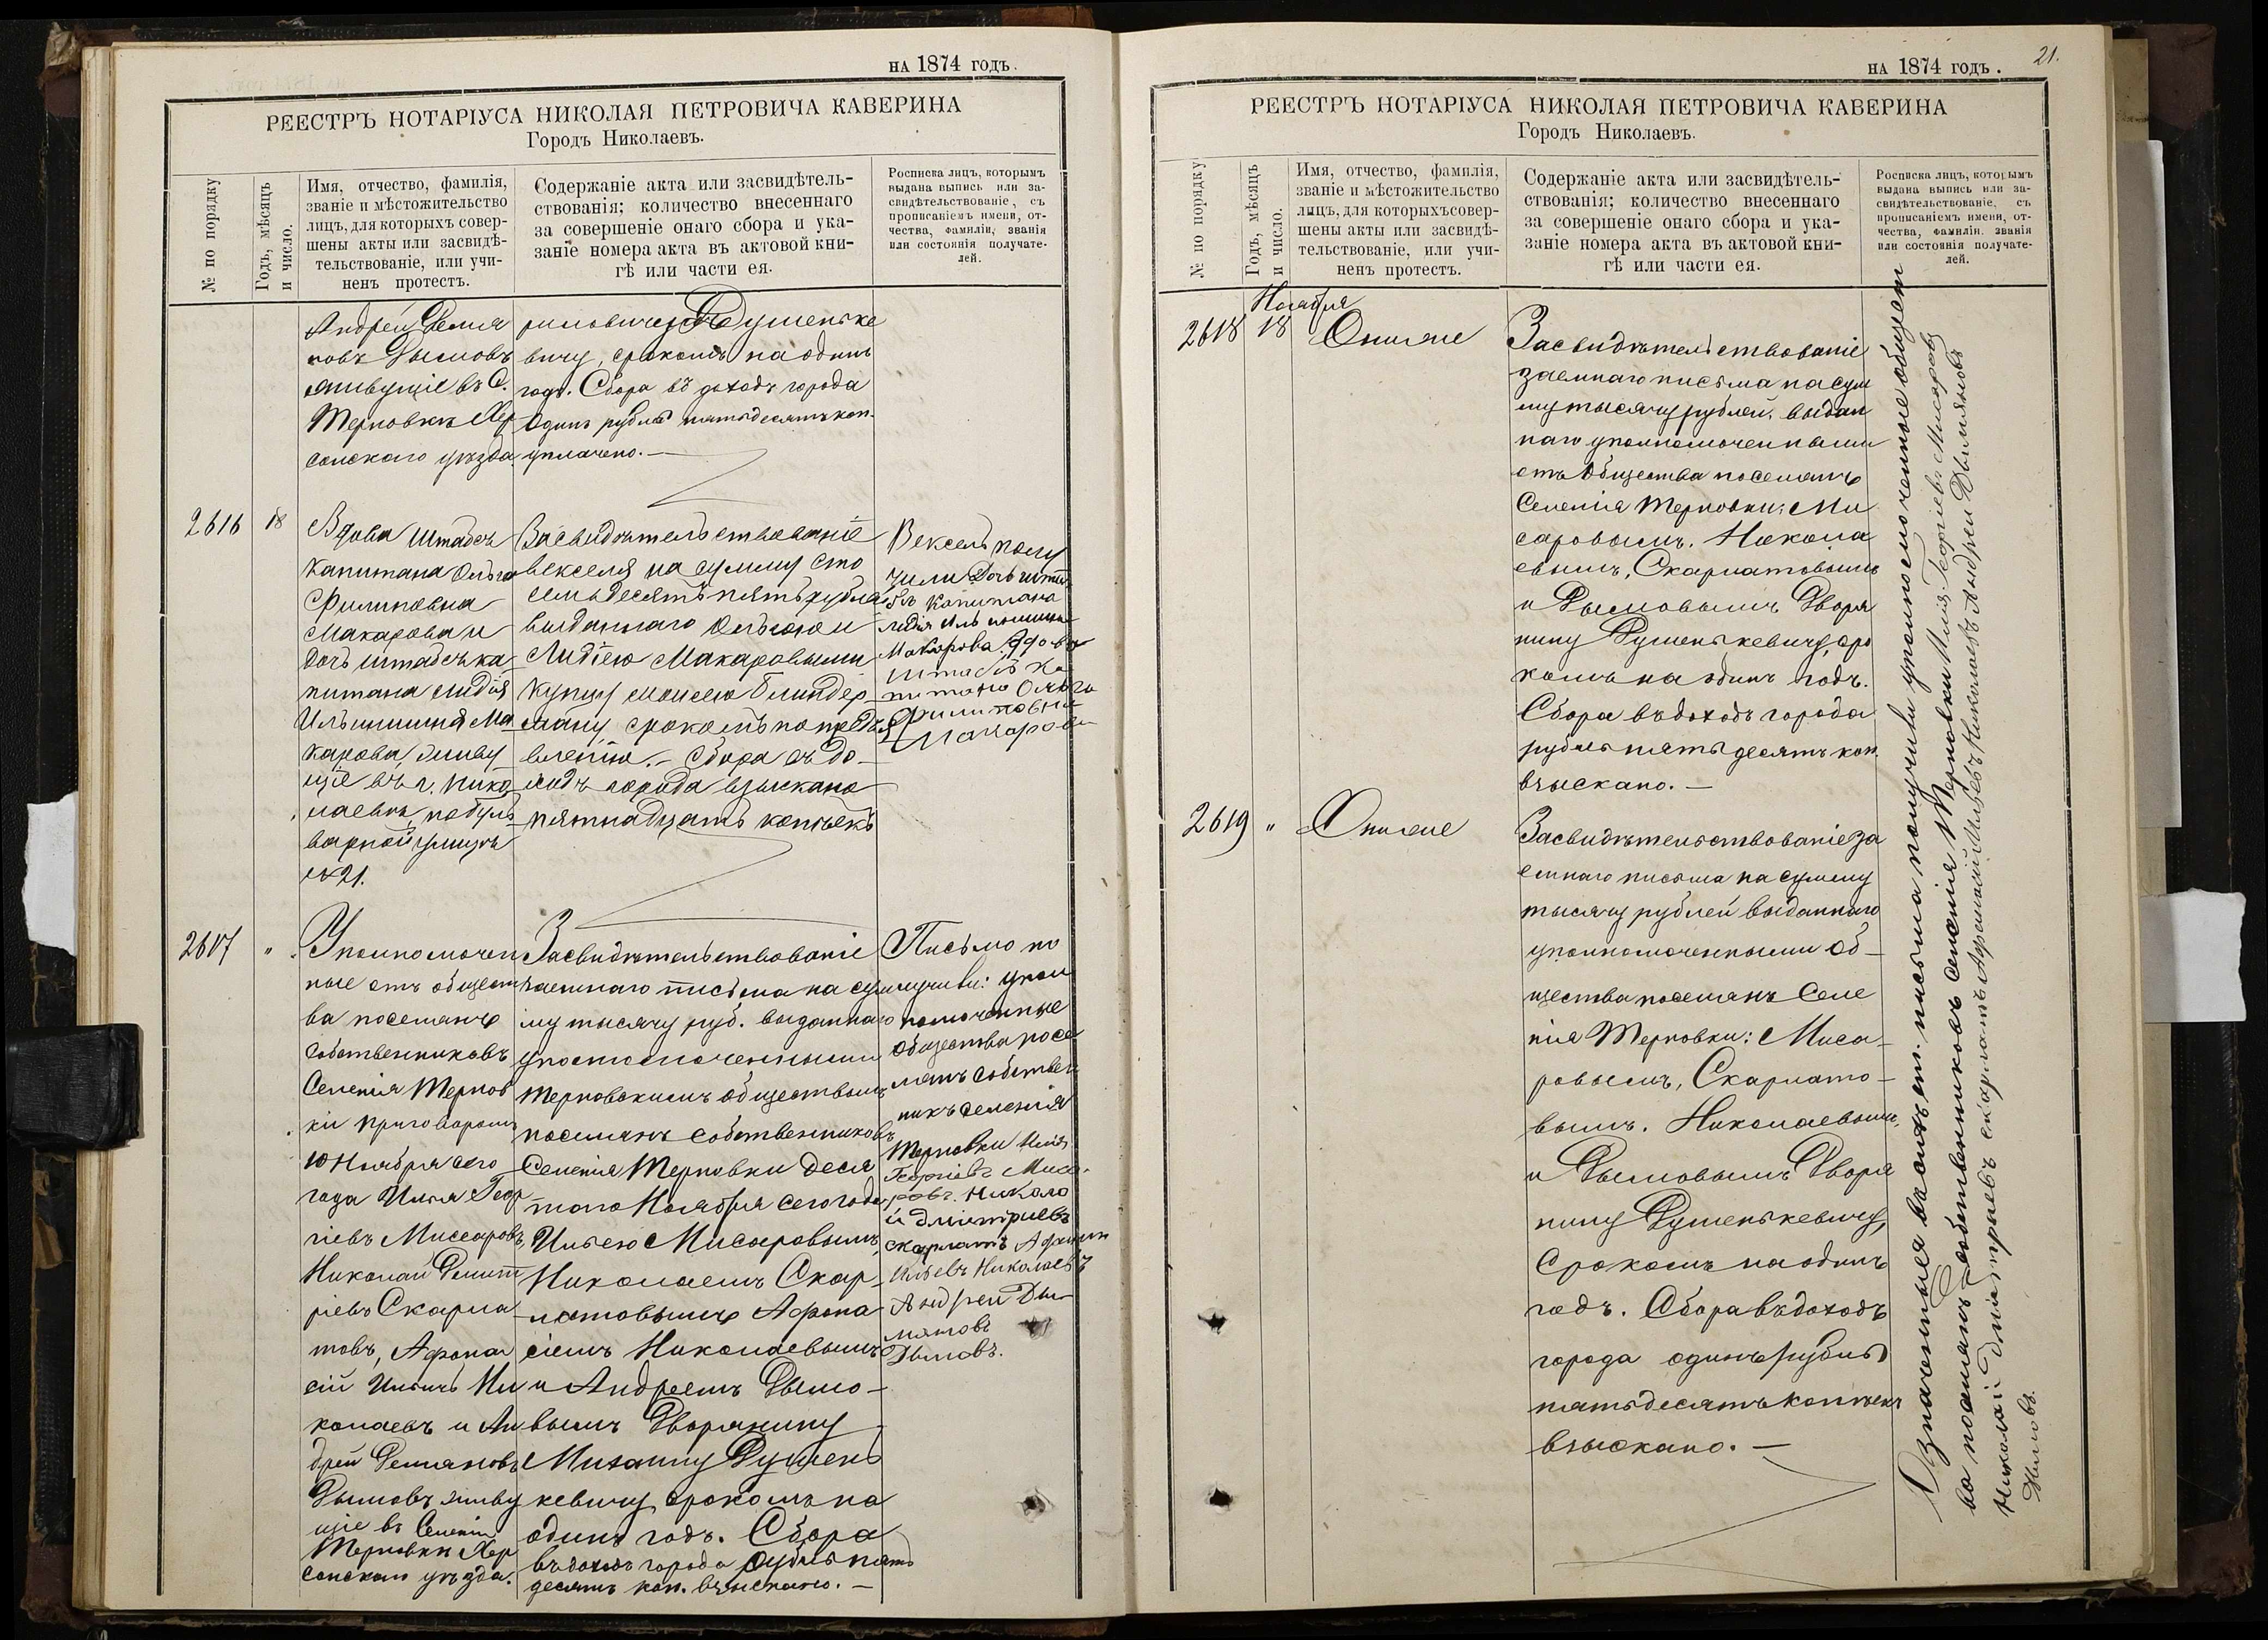 НА 1874 ГОДЪ.
РЕЕСТРЪ НОТАРІУСА НИКОЛАЯ ПЕТРОВИЧА КАВЕРИНА
Городъ Николаевъ.
№ по порядку
Годъ, мѣсяцъ
и число.
Имя, отчество, фамилія,
званіе и мѣстожительство
лицъ, для которыхъ совер-
шены акты или засвидѣ-
тельствованіе, или учи-
ненъ протестъ.
Содержаніе акта или засвидѣтель-
ствованія; количество внесеннаго
за совершеніе онаго сбора и ука-
заніе номера акта въ актовой кни-
гѣ или части ея.
Росписка лицъ, которымъ
выдана выпись или за-
свидѣтельствованіе, съ
прописаніемъ имени, от-
чества, фамиліи, званія
или состоянія получате-
лей.
Андрей Демья
новъ Дымовъ
живущіе въ С.
Терновкѣ Хер
сонскаго уѣзда
Душеньке
вичу, срокомъ на одинъ
годъ. Сбора въ доходъ города
Одинъ рубль пятьдесятъ коп.
уплачено. —
2616
18
Вдова Штабсъ
Капитана Ольга
Филиповна
Макарова и
дочь штабсъ ка
питана Лидія
Ильинишна Ма
карова, живу
щіе въ г. Нико
лаевѣ по буль
варной улицѣ
№ 21.
Засвидѣтельствованіе
векселя на сумму сто
семьдесятъ пять рублей
выданнаго Ольгою и
Лидіею Макаровыми
купцу Моисею Блиндер
ману срокомъ по предъя
вленію. — Сбора въ до-
ходъ города взыскано
пятнадцать копѣекъ
Вексель полу
чили Дочь штаб
съ Капитана
Лидія Ильинишна
Макарова, Вдова
штабсъ ка
питана Ольга
Филиповна
Макарова
2617
"
Уполномочен
ные отъ общест
ва поселянъ
собственниковъ
Селенія Тернов
ки приговоромъ
10 Ноября сего
года Илья Геор
гіевъ Мисаровъ,
Николай Дмит
ріевъ Скарла
товъ, Афана
сій Ильичъ Ни
колаевъ и Ан
дрей Демяновъ
Дымовъ живу
щіе въ Селеніи
Терновки Хер
сонскаго уѣзда.
Засвидѣтельствованіе
заемнаго письма на сум
му тысячу руб. выданнаго
уполномоченными
Терновскимъ обществомъ
поселянъ собственниковъ
Селенія Терновки деся
таго Ноября сего года
Ильею Мисаровымъ,
Николаемъ Скар
латовымъ Афона
сіемъ Николаевымъ
и Андреемъ Дымо-
вымъ Дворянину
Михаилу Душень
кевичу, срокомъ на
одинъ годъ. Сбора
въ доходъ города рубль пять
десятъ коп. взыскано. —
Письмо по
лучили: упол
номоченные
общества посе
лянъ собствен
никъ селенія
Терновки Илія
Георгіевъ Миса-
ровъ. Никола
й Дмитріевъ
Скарлатъ Афанси
Ильевъ Николаевъ
Андреи Дем
яновъ
Дымовъ.
21.
НА 1874 ГОДЪ.
РЕЕСТРЪ НОТАРІУСА НИКОЛАЯ ПЕТРОВИЧА КАВЕРИНА
Городъ Николаевъ.
№ по порядку
Годъ, мѣсяцъ
и число.
Имя, отчество, фамилія,
званіе и мѣстожительство
лицъ, для которыхъ совер-
шены акты или засвидѣ-
тельствованіе, или учи-
ненъ протестъ.
Содержаніе акта или засвидѣтель-
ствованія; количество внесеннаго
за совершеніе онаго сбора и ука-
заніе номера акта въ актовой кни-
гѣ или части ея.
Росписка лицъ, которымъ
выдана выпись или за-
свидѣтельствованіе, съ
прописаніемъ имени, от-
чества, фамиліи, званія
или состоянія получате-
лей.
Ноября
2618
18
Ониже
Засвидѣтельствованіе
заемнаго письма на сум
му тысячу рублей, выдан
наго уполномоченными
отъ Общества поселянъ
Селенія Терновки: Ми
саровымъ, Никола
евымъ, Скарлатовымъ
и Дымовымъ Дворя
нину Душенькевичу, сро
комъ на одинъ годъ.
Сбора въ доходъ города
рубль пять десятъ коп.
взыскано. —
2619
"
Ониже
Засвидѣтельствованіе за
емнаго письма на сумму
тысячу рублей выданнаго
уполномоченными Об-
щества поселянъ Селе
нія Терновки: Миса-
ровымъ, Скарлато-
вымъ. Николаевымъ,
и Дымовымъ Дворя
нину Душенькевичу,
срокомъ на одинъ
годъ. Сбора въ доходъ
города одинъ рубль
пятьдесятъ копѣекъ
взыскано. —
Означенныя письма получили уполномоченные общест
ва поселянъ собственниковъ селенія Терновки Илія Георгіевъ Мисаровъ
Николай Дмитріевъ Скарлатъ Афанасій Ильевъ Николаевъ Андреи Демьяновъ
Дымовъ.